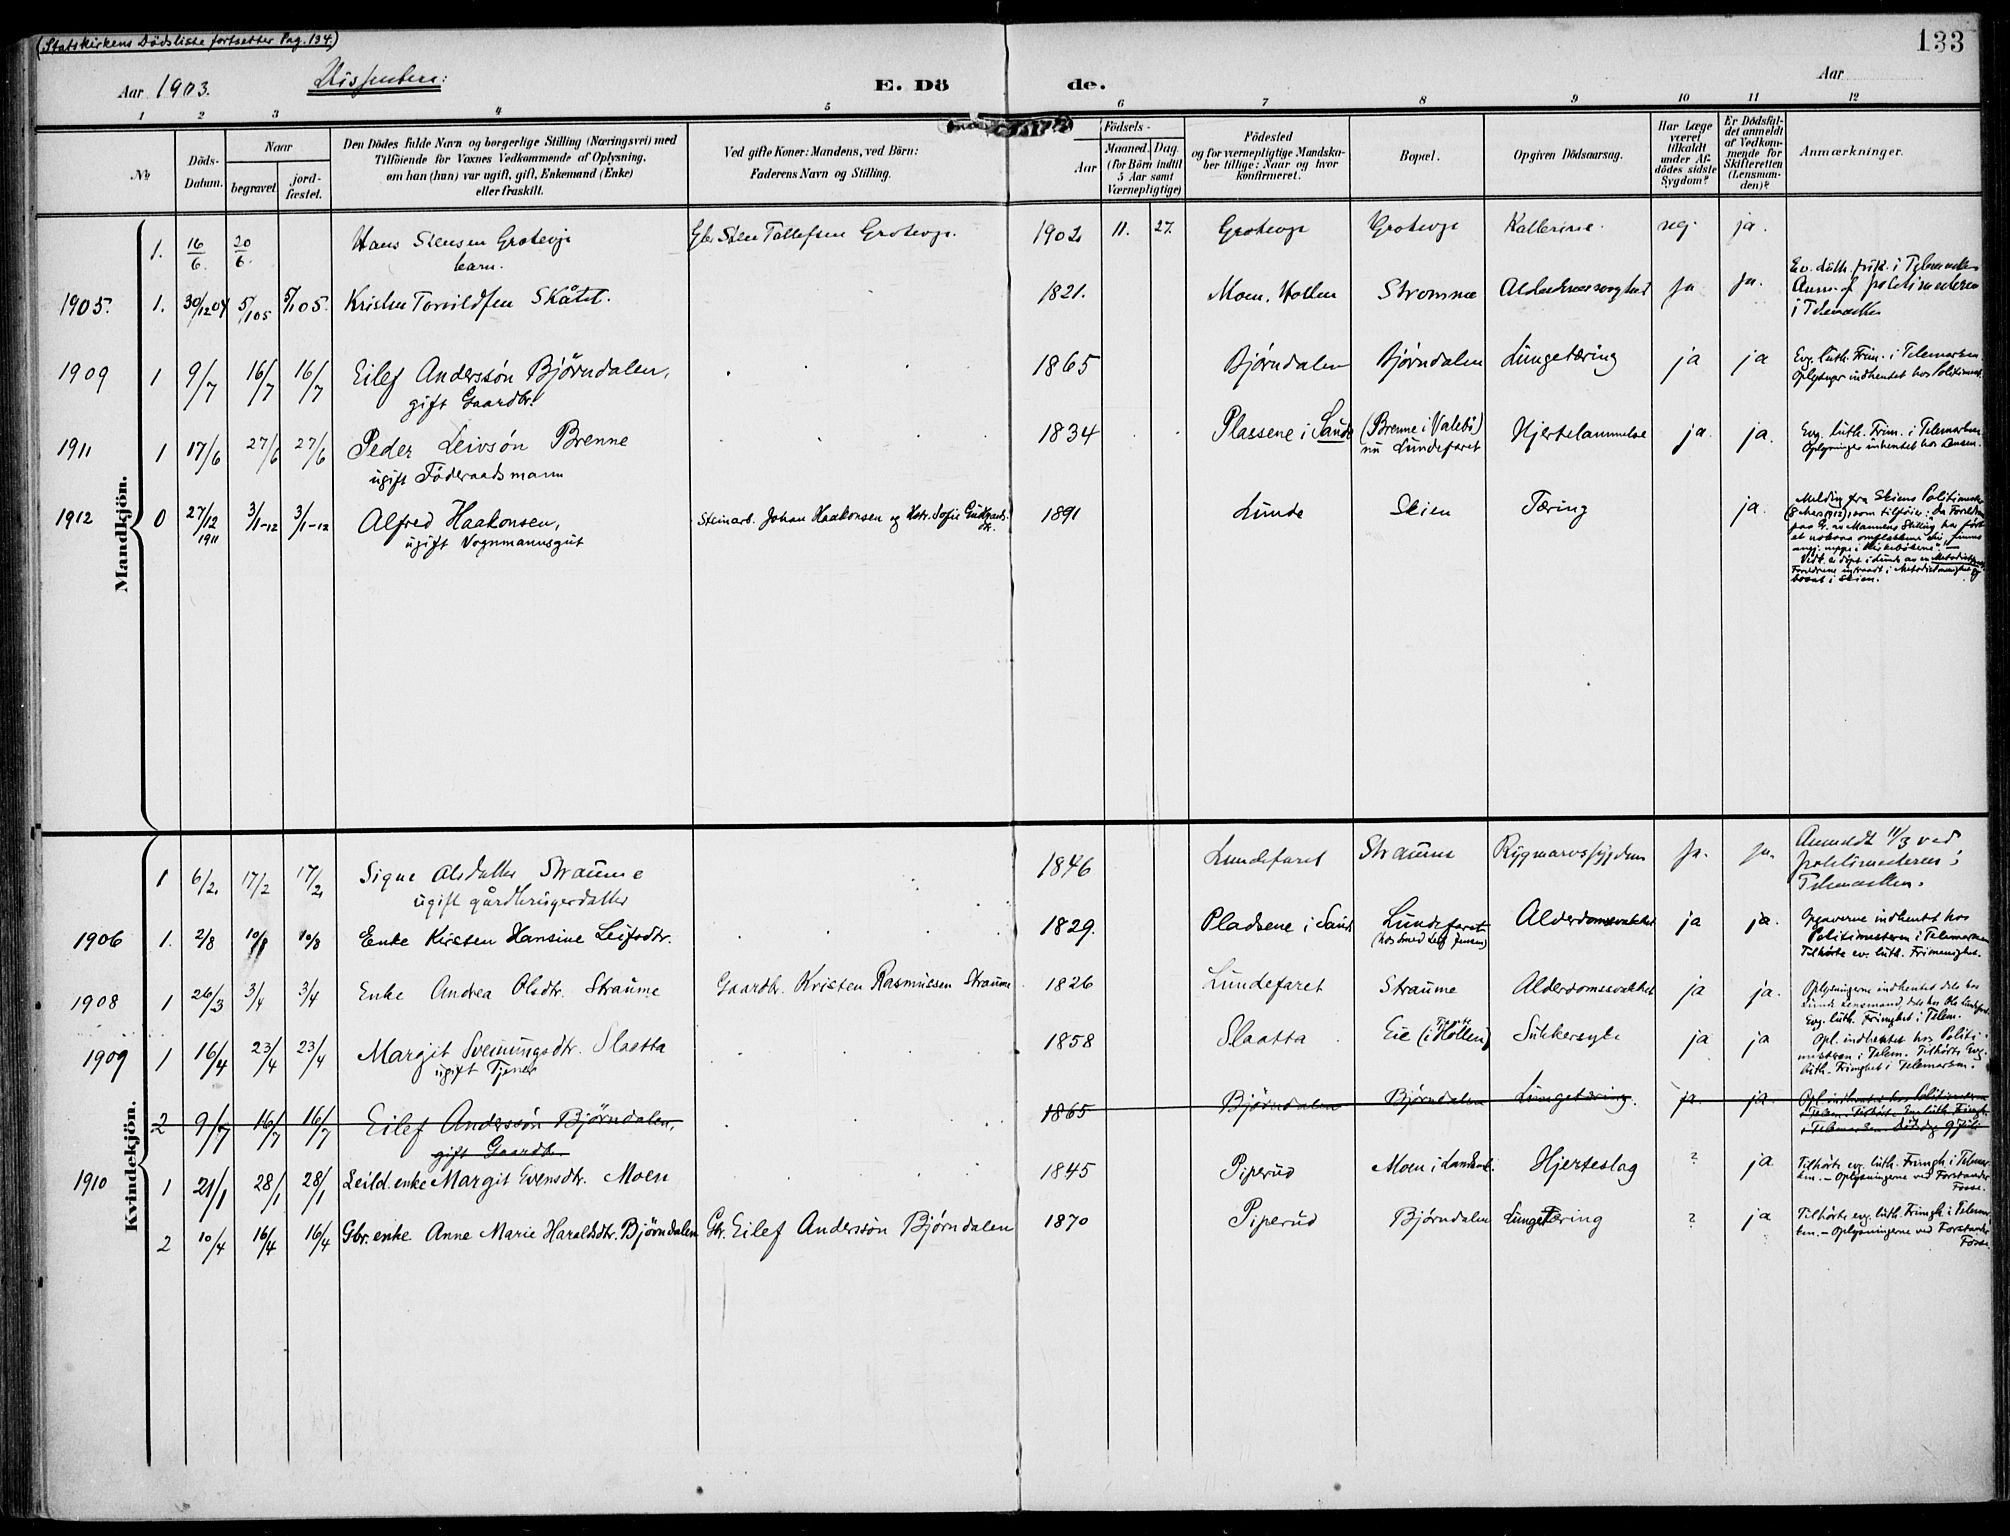 (Statskirkens Dödsliste fortsetter Pag. 134.)
133
Aar 1903. Dissentere:
E. Dö de.
Aar
1 2 3 4 5 6 7 8 9 10 11 12
№
Döds-Datum.
Naar
begravet.
jord-fæstet.
Den Dödes fulde Navn og borgerlige Stilling (Næringsvei) med
Tilföiende for Voxnes Vedkommende af Oplysning,
om han (hun) var ugift, gift, Enkemand (Enke)
eller fraskilt.
Ved gifte Koner: Mandens, ved Börn:
Faderens Navn og Stilling.
Födsels-
Aar
Maaned. Dag.
(for Börn indtil
5 Aar samt
Værnepligtige)
Födested
og for værnepligtige Mandska-
ber tillige: Naar og hvor
konfirmeret.
Bopæl.
Opgiven Dödsaarsag.
Har Læge
været
tilkaldt
under Af-
dödes sidste
Sygdom?
Er Dödsfal-
det anmeldt
af Vedkom-
mende for
Skifteretten
(Lensman-
den)?
Anmærkninger.
Mandkjön.
1. 16/6. 20/6. Hans Stensen Grotevje Gbr. Sten Tollefsen Grotevje. 1902 11. 27. Grotevje Grotevje nej. ja.
barn.
1905. 1. 30/12 04 5/1 05 5/1 05. Kristen Torvildsen Skåtet. 1821. Moen, Hollen Stromme Ja Ja. Ev. luth. frik. i Telemarken
Anm. af politimesteren
i Telemarken
1909 1 9/7 16/7 16/7 Eilef Anderssön Björndalen, 1865 Björndalen Björndalen Lungetæring ja ja Evg. luth. Frim. i Telemarken
gift Gaardbr. Oplysninger indhentet hos Politimest.
1911 1 17/6 27/6 27/6 Peder Leivsön Brenne 1834 Plassene i Sande (Brenne i Valebö) Hjertelammelse ja. ja. Evg. luth. Frim. i Telemarken
ugift Föderaadsmann nu Lundefaret Oplysninger inhentet hos Lensm.
1912 0 27/12 1911 3/1-12 3/1-12 Alfred Haakonsen, Steinarb. Johan Haakonsen og Hstr. Sofie 1891 Lunde Skien Tæring ja. Melding fra Skiens Politimester
ugift Vognmannsgut
i Skien.
Kvindekjön.
1 6/2. 17/2 17/2 Signe Olsdatter Straume 1846 Lundefaret Straume Rygmarvssygdom Ja. Ja. Anmeldt 11/3 ved
ugift gårdbrugerdatter politimesteren i
Telemarken.
1906 1. 2/8 10/8 10/8 Enke Kirsten Hansine Leifsdtr. 1829. Pladsene i Sande Lundefaret Alderdomssvakhet ja ja. Opgaverne indhentet hos
(hos Smed Leif Jensen) Politimesteren i Telemarken
Tilhörte ev. luth. Frimenighet.
1908 1 26/3 3/4 3/4 Enke Andrea Olsdtr. Straume Gaardbr. Kristen Rasmussen Straume 1826 Lundefaret Straume Alderdomssvakhet ja ja. Oplysningerne indhentet dels hos
Lunde Lensmand, dels hos Ole Lundefaret.
Evg. luth. Frimghet i Telem.
1909 1 16/4 23/4 23/4 Margit Sveinungsdtr. Slaatta 1858 Slaatta Eie (i Hollen) Sukkersyke ja ja Opl. indhentet hos Politi-
ugift Tjener mesteren i Telem. Tilhörte Evg.
luth. Frimghet i Telemarken.
2 9/7 16/7 16/7 Eilef Anderssön Björndalen, 1865 Björndalen Björndalen Lungetæring. ja ja Opl. indhentet hos Politimesteren
gift Gaardbr. i Telem. Tilhörte Evg. luth. Frimgh.
i Telemarken Dödsdag 9 Juli
1910 1 21/1 28/1 28/1 Leild. enke Margit Evensdtr. Moen 1845 Piperud Moen i Landsm. Hjerteslag ? ja Tilhörte evg. luth. Frimgh. i Telemar-
ken. – Oplysningerne ved Forstander
Fosse.
2 10/4 16/4 16/4 Gbr. enke Anne Marie Haraldsdtr. Björndalen Gbr. Eilef Anderssön Björndalen 1870 Piperud Björndalen Lungetæring ? ja Tilhörte evg. luth. Frimgh. i Telemar-
ken. – Oplysningerne ved Forstander
Fosse.